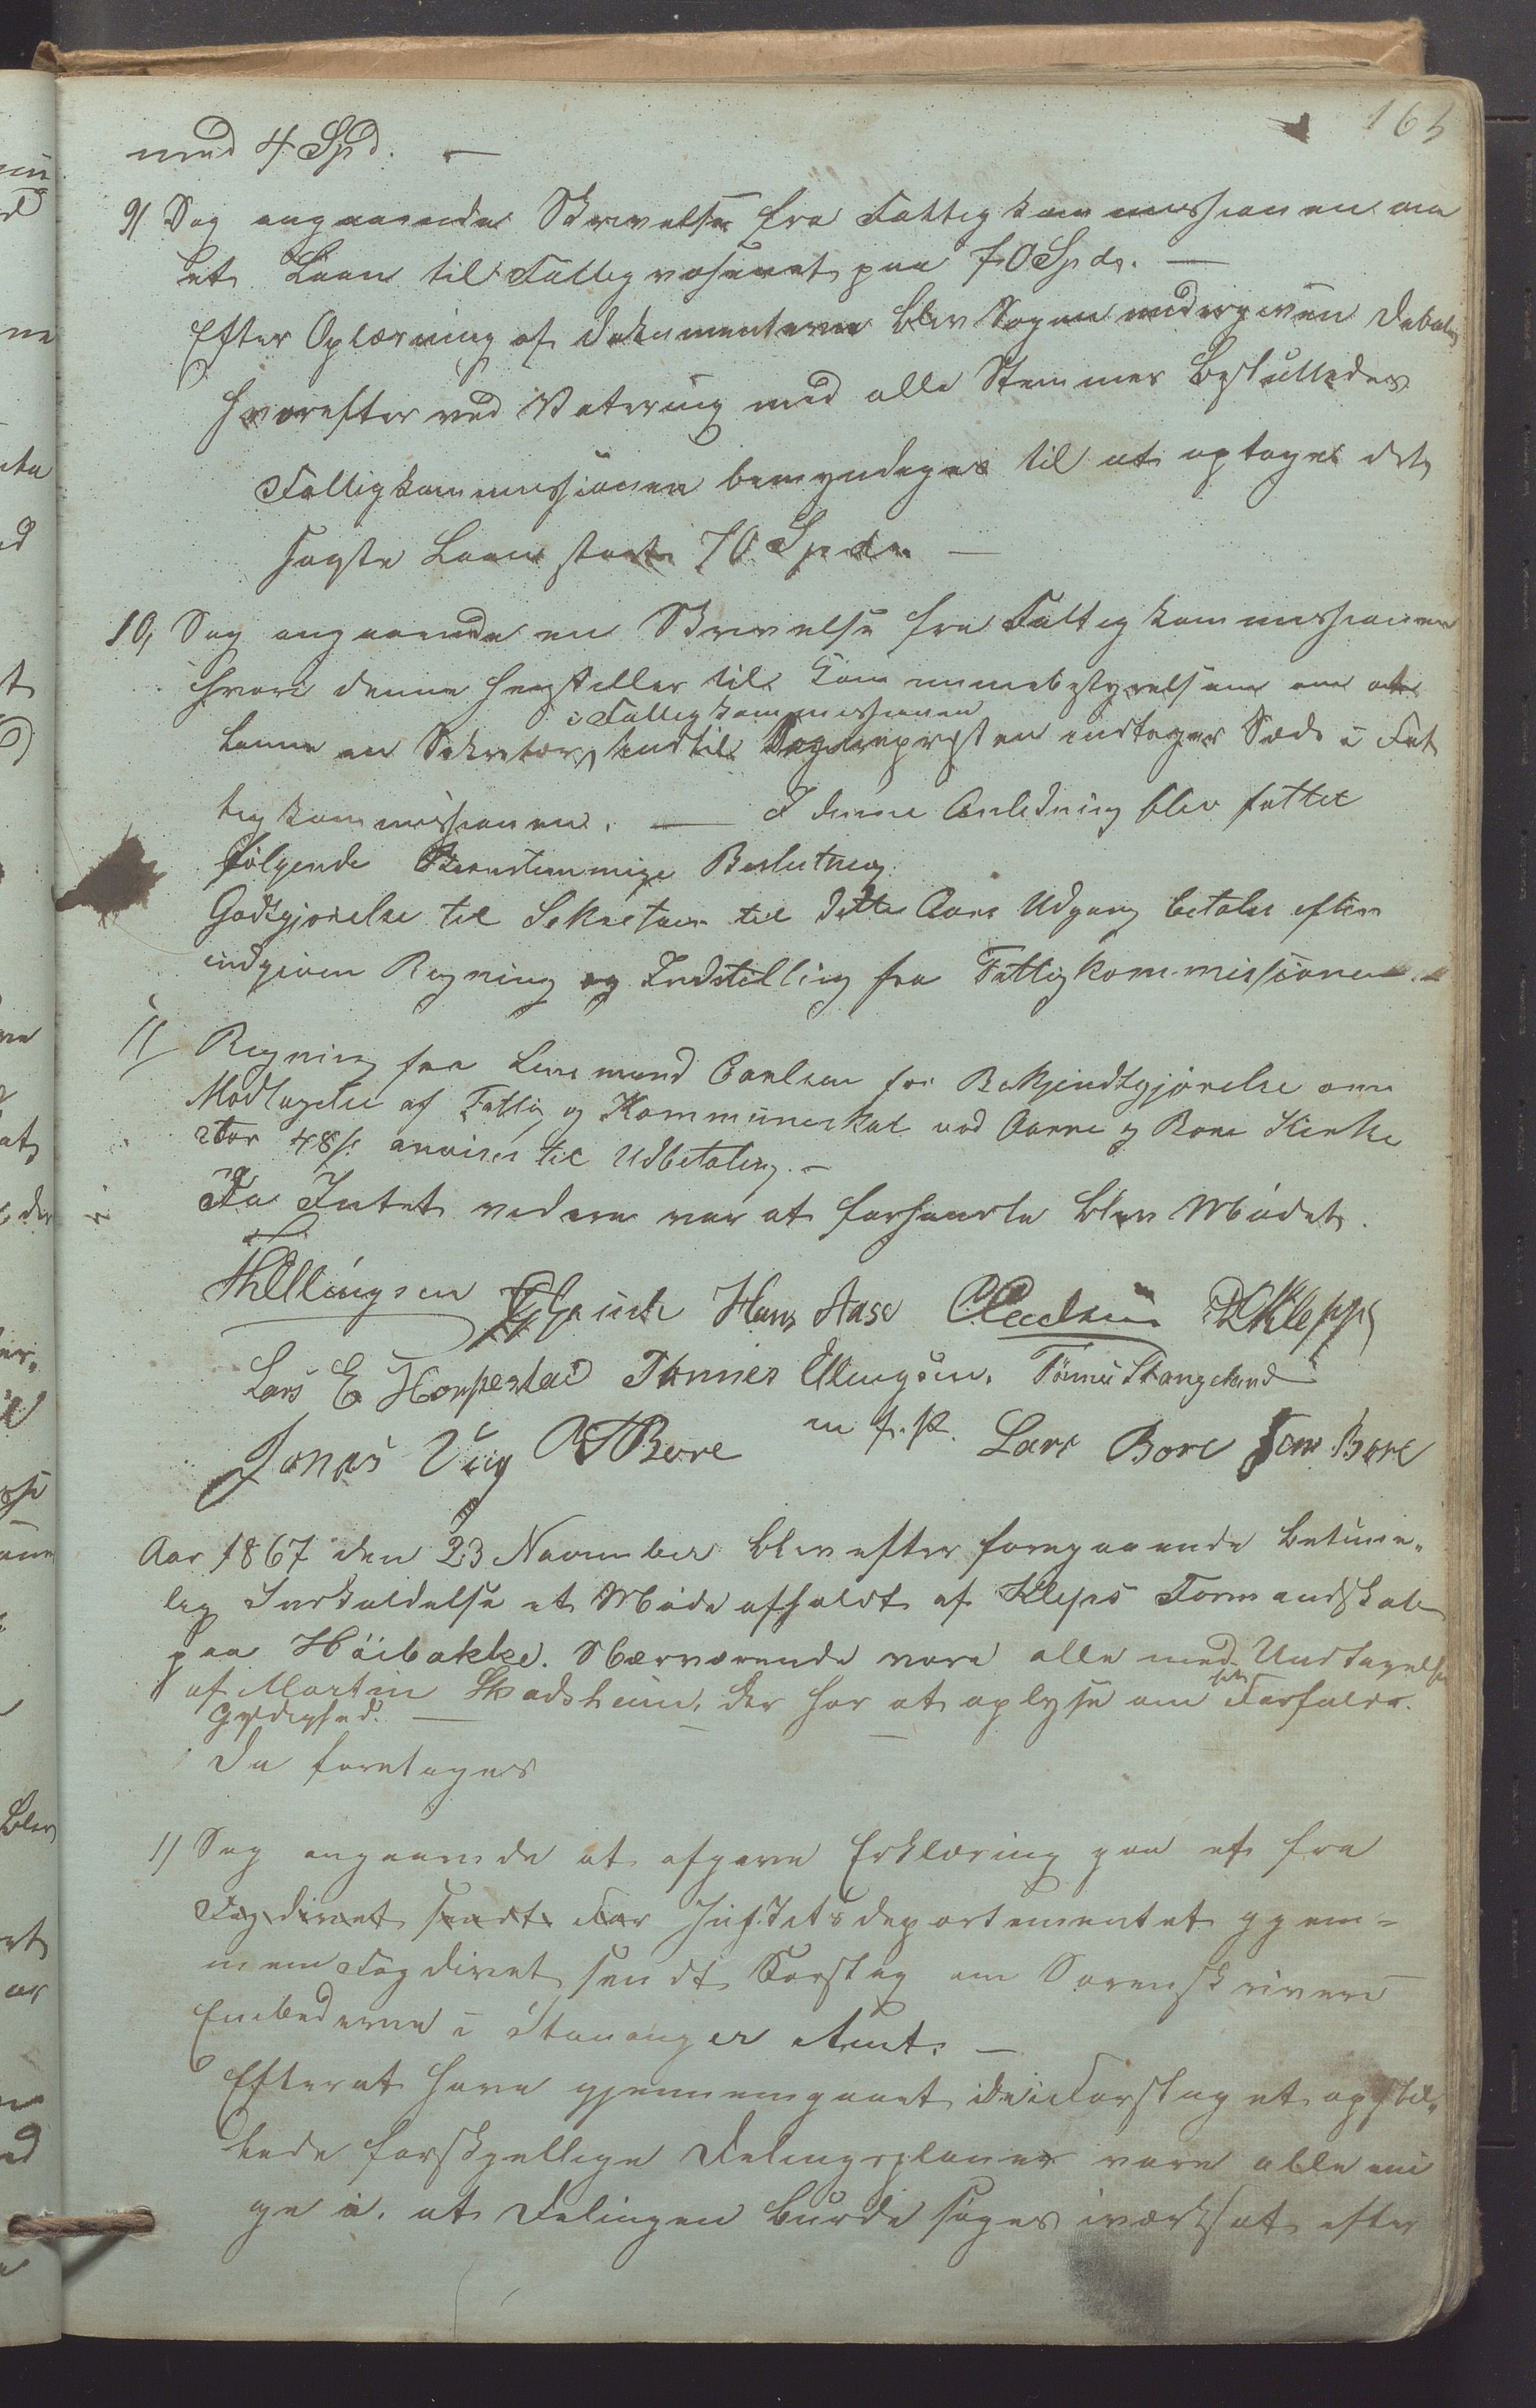 163
med 4 Spd. —
9/ Sag angaaende Skrivelse fra Fattigkommissionen om
et Laan til Fattigvæsenet paa 70 Spd. —
Efter Oplæsning af Dokumenterne blev Sagen undergiven Debat,
hvorefter ved Votering med alle Stemmer besluttedes
Fattigkommissionen bemyndiges til at optage det
søgte Laan stort 70 Spd. —
10, Sag angaaende en Skrivelse fra Fattigkommissionen
hvori denne henstiller til Kommunebestyrelsen om at
i Fattigkommissionen
lønne en Sekretær, indtil Sognepresten indtager Sæde i Fat
tigkommissionen. — I denne Anledning blev fattet
følgende Eenstemmige Beslutning
Godtgjørelse til Sekretær til dette Aars Udgang betales efter
indgiven Regning og Indstilling fra Fattigkommissionen. —
11/ Regning fra Lensmand Carlsen for Bekjendtgjørelse om
Modtagelse af Fattig og Kommuneskat ved Orre og Bore Kirke
stor 48 s. anvises til Udbetaling. —
Da Intet videre var at forhandle blev Mødet
Ellingsen Hans Aase Kleppe
Lars E Horpestad Tønnes Ellingsen. Tønnes Stangeland
Jonas Viig Bore m. f. P. Lars Bore Bore
Aar 1867 den 23 November blev efter foregaaende betime-
lig Indkaldelse et Møde afholdt af Kleps Formandskab
paa Höibakke. Nærværende vare alle med Undtagelse
af Martin Skadsheim, der har at oplyse om sit Forfalds
Gyldighed. —
Da foretages
1/ Sag angaaende at afgive Erklæring paa et fra
Fogderiet sendt For Justitsdepartementet gjen-
nem Fogderiet sendt Forslag om Sorenskriver
Embederne i Stavanger Amt. —
Efterat have gjennemgaaet de i Forslaget opstil-
lede forskjellige Delingsplaner vare alle eni
ge i, at Delingen burde søges iværksat efter